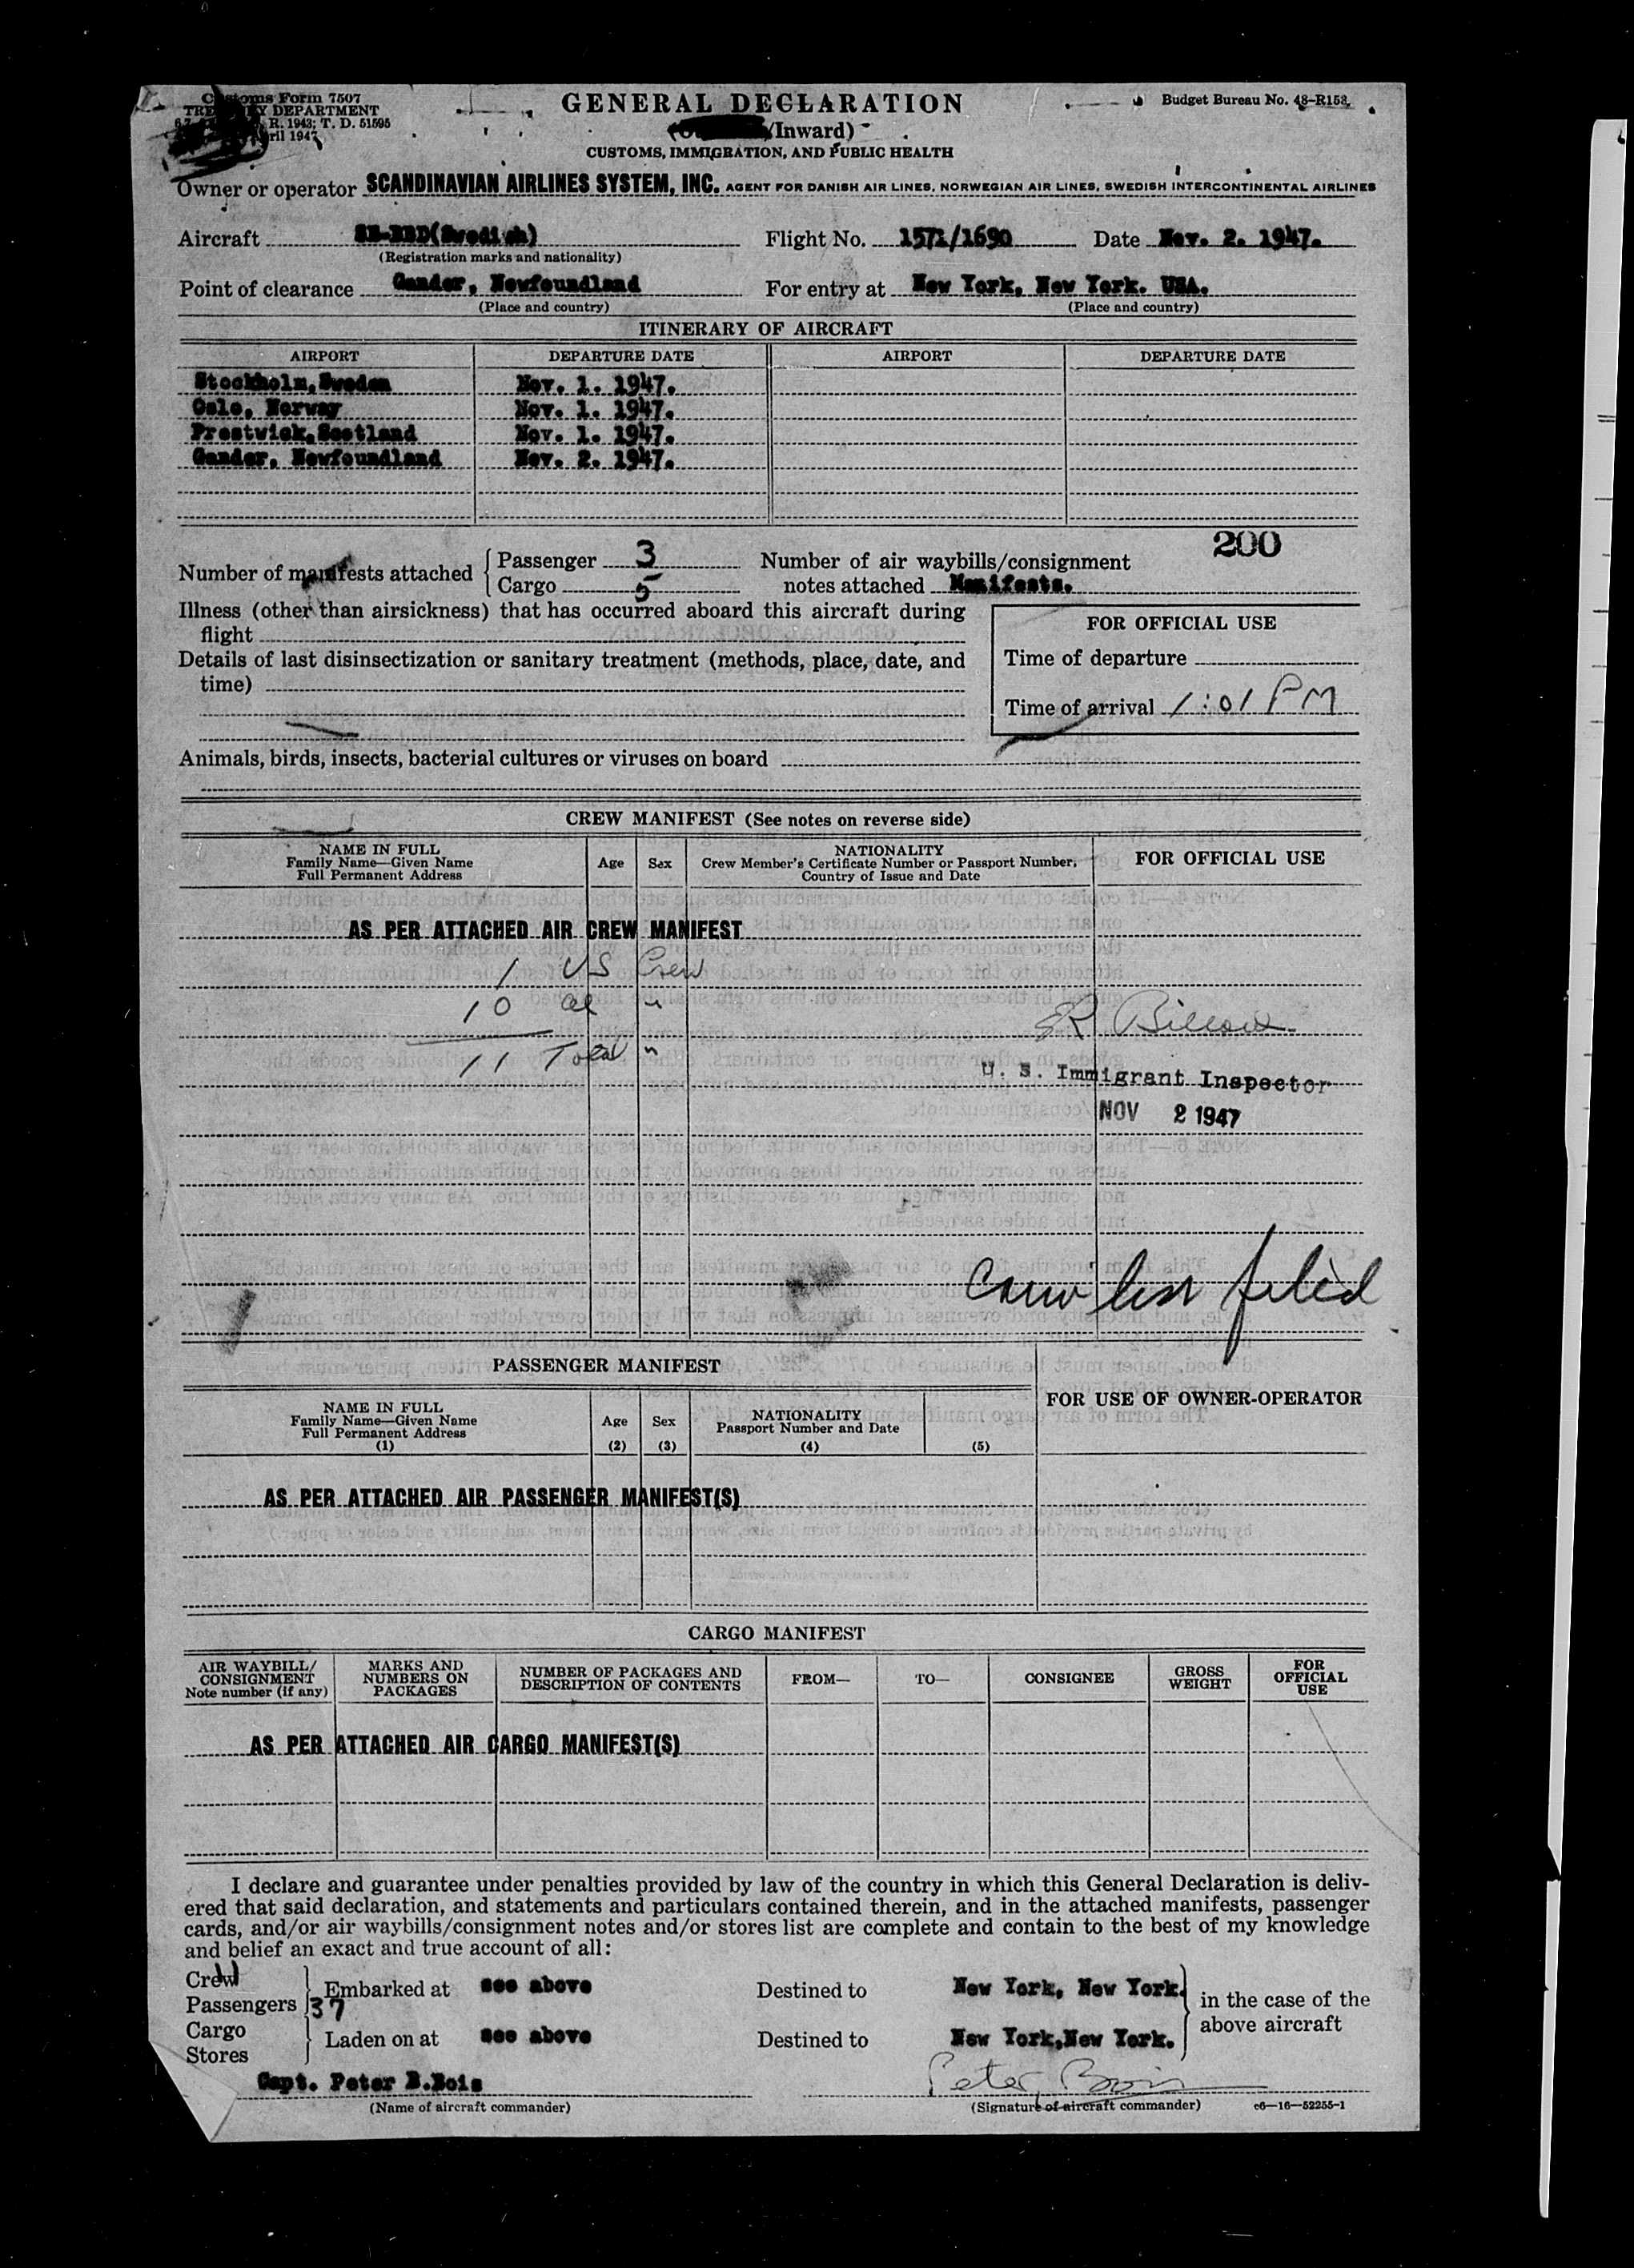 Customs Form 7507
TREASURY DEPARTMENT
R. 1943; T. D. 51595
April 1947
GENERAL DECLARATION
/Inward)
CUSTOMS, IMMIGRATION, AND PUBLIC HEALTH
Budget Bureau No. 48-R153.
Owner or operator SCANDINAVIAN AIRLINES SYSTEM, INC. AGENT FOR DANISH AIR LINES, NORWEGIAN AIR LINES, SWEDISH INTERCONTINENTAL AIRLINES
Aircraft (Swedish) Flight No. 1571/1690 Date Nov. 2. 1947.
(Registration marks and nationality)
Point of clearance Gander, Newfoundland For entry at New York, New York. USA.
(Place and country) (Place and country)
ITINERARY OF AIRCRAFT
AIRPORT DEPARTURE DATE AIRPORT DEPARTURE DATE
Stockholm, Sweden Nov. 1. 1947.
Oslo, Norway Nov. 1. 1947.
Prestwick, Scotland Nov. 1. 1947.
Gander, Newfoundland Nov. 2. 1947.
200
Number of manifests attached { Passenger 3 Number of air waybills/consignment
Cargo 5 notes attached Manifests.
Illness (other than airsickness) that has occurred aboard this aircraft during
flight
Details of last disinsectization or sanitary treatment (methods, place, date, and
time)
FOR OFFICIAL USE
Time of departure
Time of arrival 1:01 PM
Animals, birds, insects, bacterial cultures or viruses on board
CREW MANIFEST (See notes on reverse side)
NAME IN FULL
Family Name—Given Name
Full Permanent Address
Age Sex
NATIONALITY
Crew Member's Certificate Number or Passport Number,
Country of Issue and Date
FOR OFFICIAL USE
AS PER ATTACHED AIR CREW MANIFEST
1 US Crew
10 al "
11 Total "
U. S. Immigrant Inspector
NOV 2 1947
Crew list filed
PASSENGER MANIFEST
NAME IN FULL
Family Name—Given Name
Full Permanent Address
(1)
Age
(2)
Sex
(3)
NATIONALITY
Passport Number and Date
(4) (5)
FOR USE OF OWNER-OPERATOR
AS PER ATTACHED AIR PASSENGER MANIFEST(S)
CARGO MANIFEST
AIR WAYBILL/
CONSIGNMENT
Note number (if any)
MARKS AND
NUMBERS ON
PACKAGES
NUMBER OF PACKAGES AND
DESCRIPTION OF CONTENTS
FROM— TO— CONSIGNEE
GROSS
WEIGHT
FOR
OFFICIAL
USE
AS PER ATTACHED AIR CARGO MANIFEST(S)
I declare and guarantee under penalties provided by law of the country in which this General Declaration is deliv-
ered that said declaration, and statements and particulars contained therein, and in the attached manifests, passenger
cards, and/or air waybills/consignment notes and/or stores list are complete and contain to the best of my knowledge
and belief an exact and true account of all:
Crew 11
Passengers 37
Embarked at see above Destined to New York, New York.
Cargo
Stores
Laden on at see above Destined to New York, New York.
in the case of the
above aircraft
Capt. Peter B. Bois
(Name of aircraft commander)
(Signature of aircraft commander) c6—16—52255-1